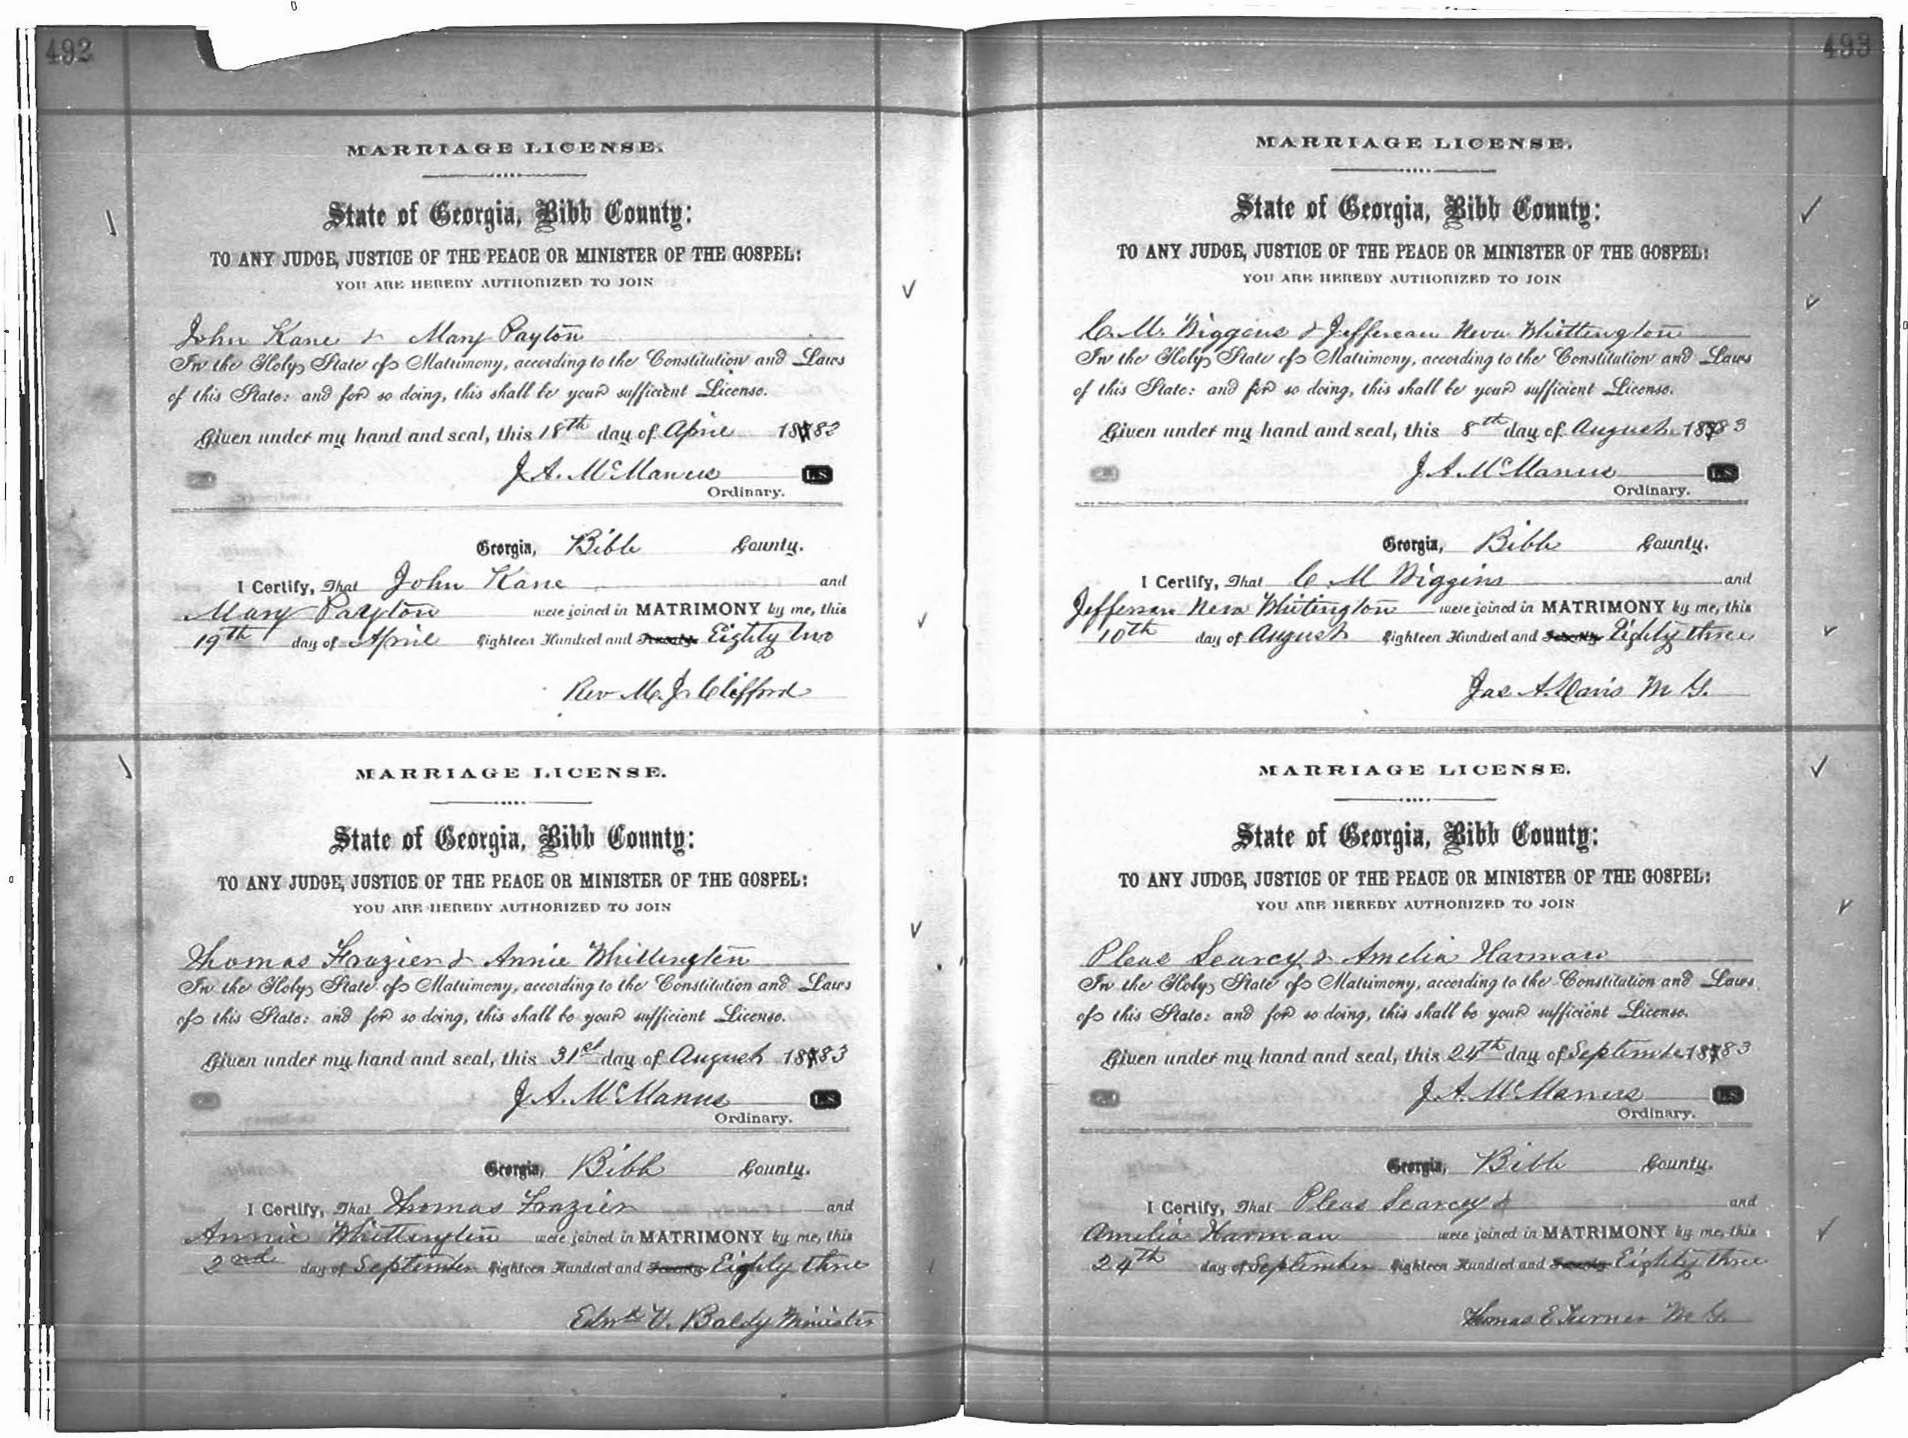 492
MARRIAGE LICENSE.
State of Georgia, Bibb County:
TO ANY JUDGE, JUSTICE OF THE PEACE OR MINISTER OF THE GOSPEL:
YOU ARE HEREBY AUTHORIZED TO JOIN
John Kane & Mary Payton
In the Holy State of Matrimony, according to the Constitution and Laws
of this State: and for so doing, this shall be your sufficient License.
Given under my hand and seal, this 18th day of April 1882
J. A. McManus L.S.
Ordinary.
Georgia, Bibb County.
I Certify, That John Kane and
Mary Payton were joined in MATRIMONY by me, this
19th day of April Eighteen Hundred and Seventy Eighty two
Rev M. J. Clifford
MARRIAGE LICENSE.
State of Georgia, Bibb County:
TO ANY JUDGE, JUSTICE OF THE PEACE OR MINISTER OF THE GOSPEL:
YOU ARE HEREBY AUTHORIZED TO JOIN
Thomas Frazier & Annie Whittington
In the Holy State of Matrimony, according to the Constitution and Laws
of this State: and for so doing, this shall be your sufficient License.
Given under my hand and seal, this 31st day of August 1883
J. A. McManus L.S.
Ordinary.
Georgia, Bibb County.
I Certify, That Thomas Frazier and
Annie Whittington were joined in MATRIMONY by me, this
2nd day of September Eighteen Hundred and Seventy Eighty three
Edwd V. Baldy Minister
493
MARRIAGE LICENSE.
State of Georgia, Bibb County:
TO ANY JUDGE, JUSTICE OF THE PEACE OR MINISTER OF THE GOSPEL:
YOU ARE HEREBY AUTHORIZED TO JOIN
C. M. Wiggins & Jefferson Neva Whittington
In the Holy State of Matrimony, according to the Constitution and Laws
of this State: and for so doing, this shall be your sufficient License.
Given under my hand and seal, this 8th day of August 1883
J. A. McManus L.S.
Ordinary.
Georgia, Bibb County.
I Certify, That C M Wiggins and
Jefferson Neva Whitington were joined in MATRIMONY by me, this
10th day of August Eighteen Hundred and Seventy Eighty three
Jas A. Davis M G.
MARRIAGE LICENSE.
State of Georgia, Bibb County:
TO ANY JUDGE, JUSTICE OF THE PEACE OR MINISTER OF THE GOSPEL:
YOU ARE HEREBY AUTHORIZED TO JOIN
Pleas Searcy & Amelia Harman
In the Holy State of Matrimony, according to the Constitution and Laws
of this State: and for so doing, this shall be your sufficient License.
Given under my hand and seal, this 24th day of September 1883
J. A. McManus L.S.
Ordinary.
Georgia, Bibb County.
I Certify, That Pleas Searcy & and
Amelia Harman were joined in MATRIMONY by me, this
24th day of September Eighteen Hundred and Seventy Eighty three
Thomas E Turner M G.